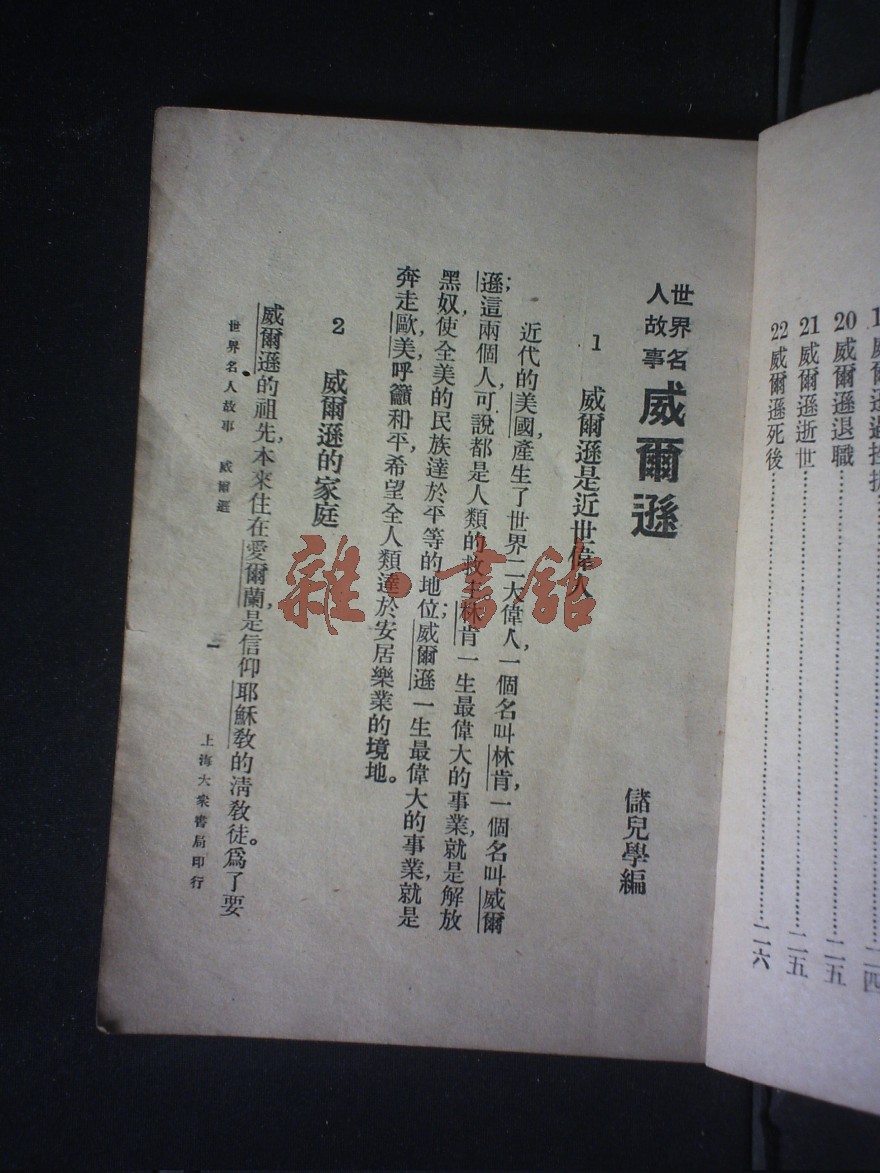 威爾遜
二四
20 威爾遜退職……………………二五
21 威爾遜逝世……………………二五
22 威爾遜死後……………………二六
世界名
人故事
威爾遜
儲兒學編
1 威爾遜是近世偉人
近代的美國,產生了世界二大偉人,一個名叫林肯,一個名叫威爾
遜;這兩個人,可說都是人類的救主林肯一生最偉大的事業,就是解放
黑奴,使全美的民族達於平等的地位;威爾遜一生最偉大的事業,就是
奔走歐,美,呼籲和平,希望全人類達於安居樂業的境地。
2 威爾遜的家庭
威爾遜的祖先,本來住在愛爾蘭,是信仰耶穌教的清教徒。爲了要
世界名人故事 威爾遜 一 上海大衆書局印行
雜·書館